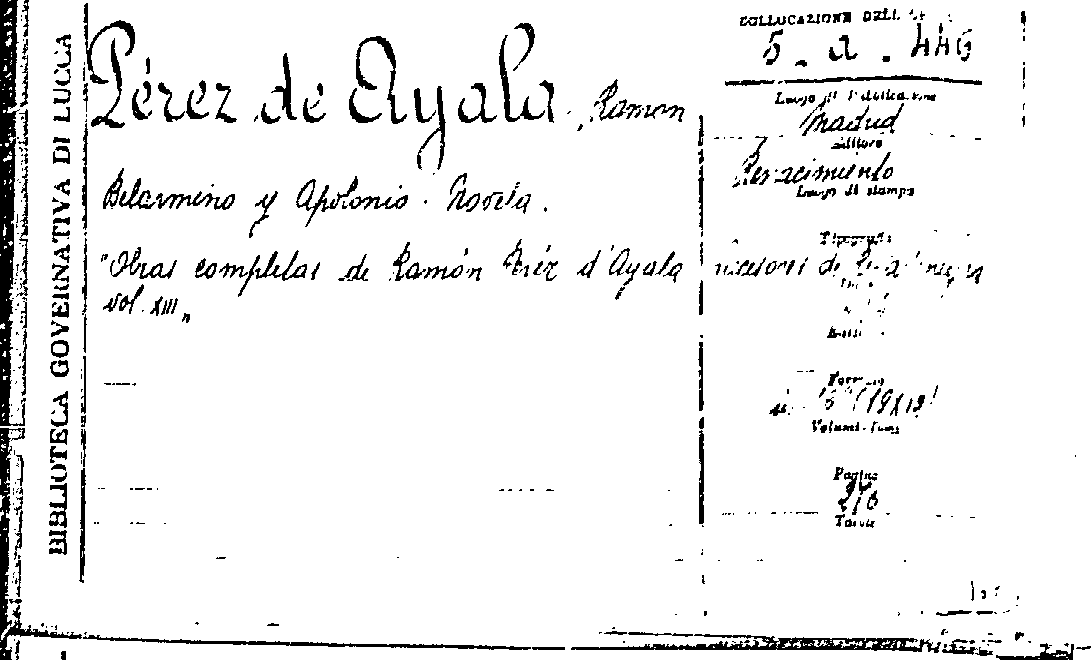 BIBLIOTECA GOVERNATIVA DI LUCCA
Pérez de Ayala, Ramón
Belarmino y Apolonio. Novela.
"Obras completas de Ramón Peréz d'Ayala
vol. XIII"
COLLOCAZIONE DELL
5. a. 446
Luogo di Pubblicazione
Madrid
Editore
Renacimiento
Luogo di stampa
Tipografia
Formato
Volumi
Pagine
Tavole